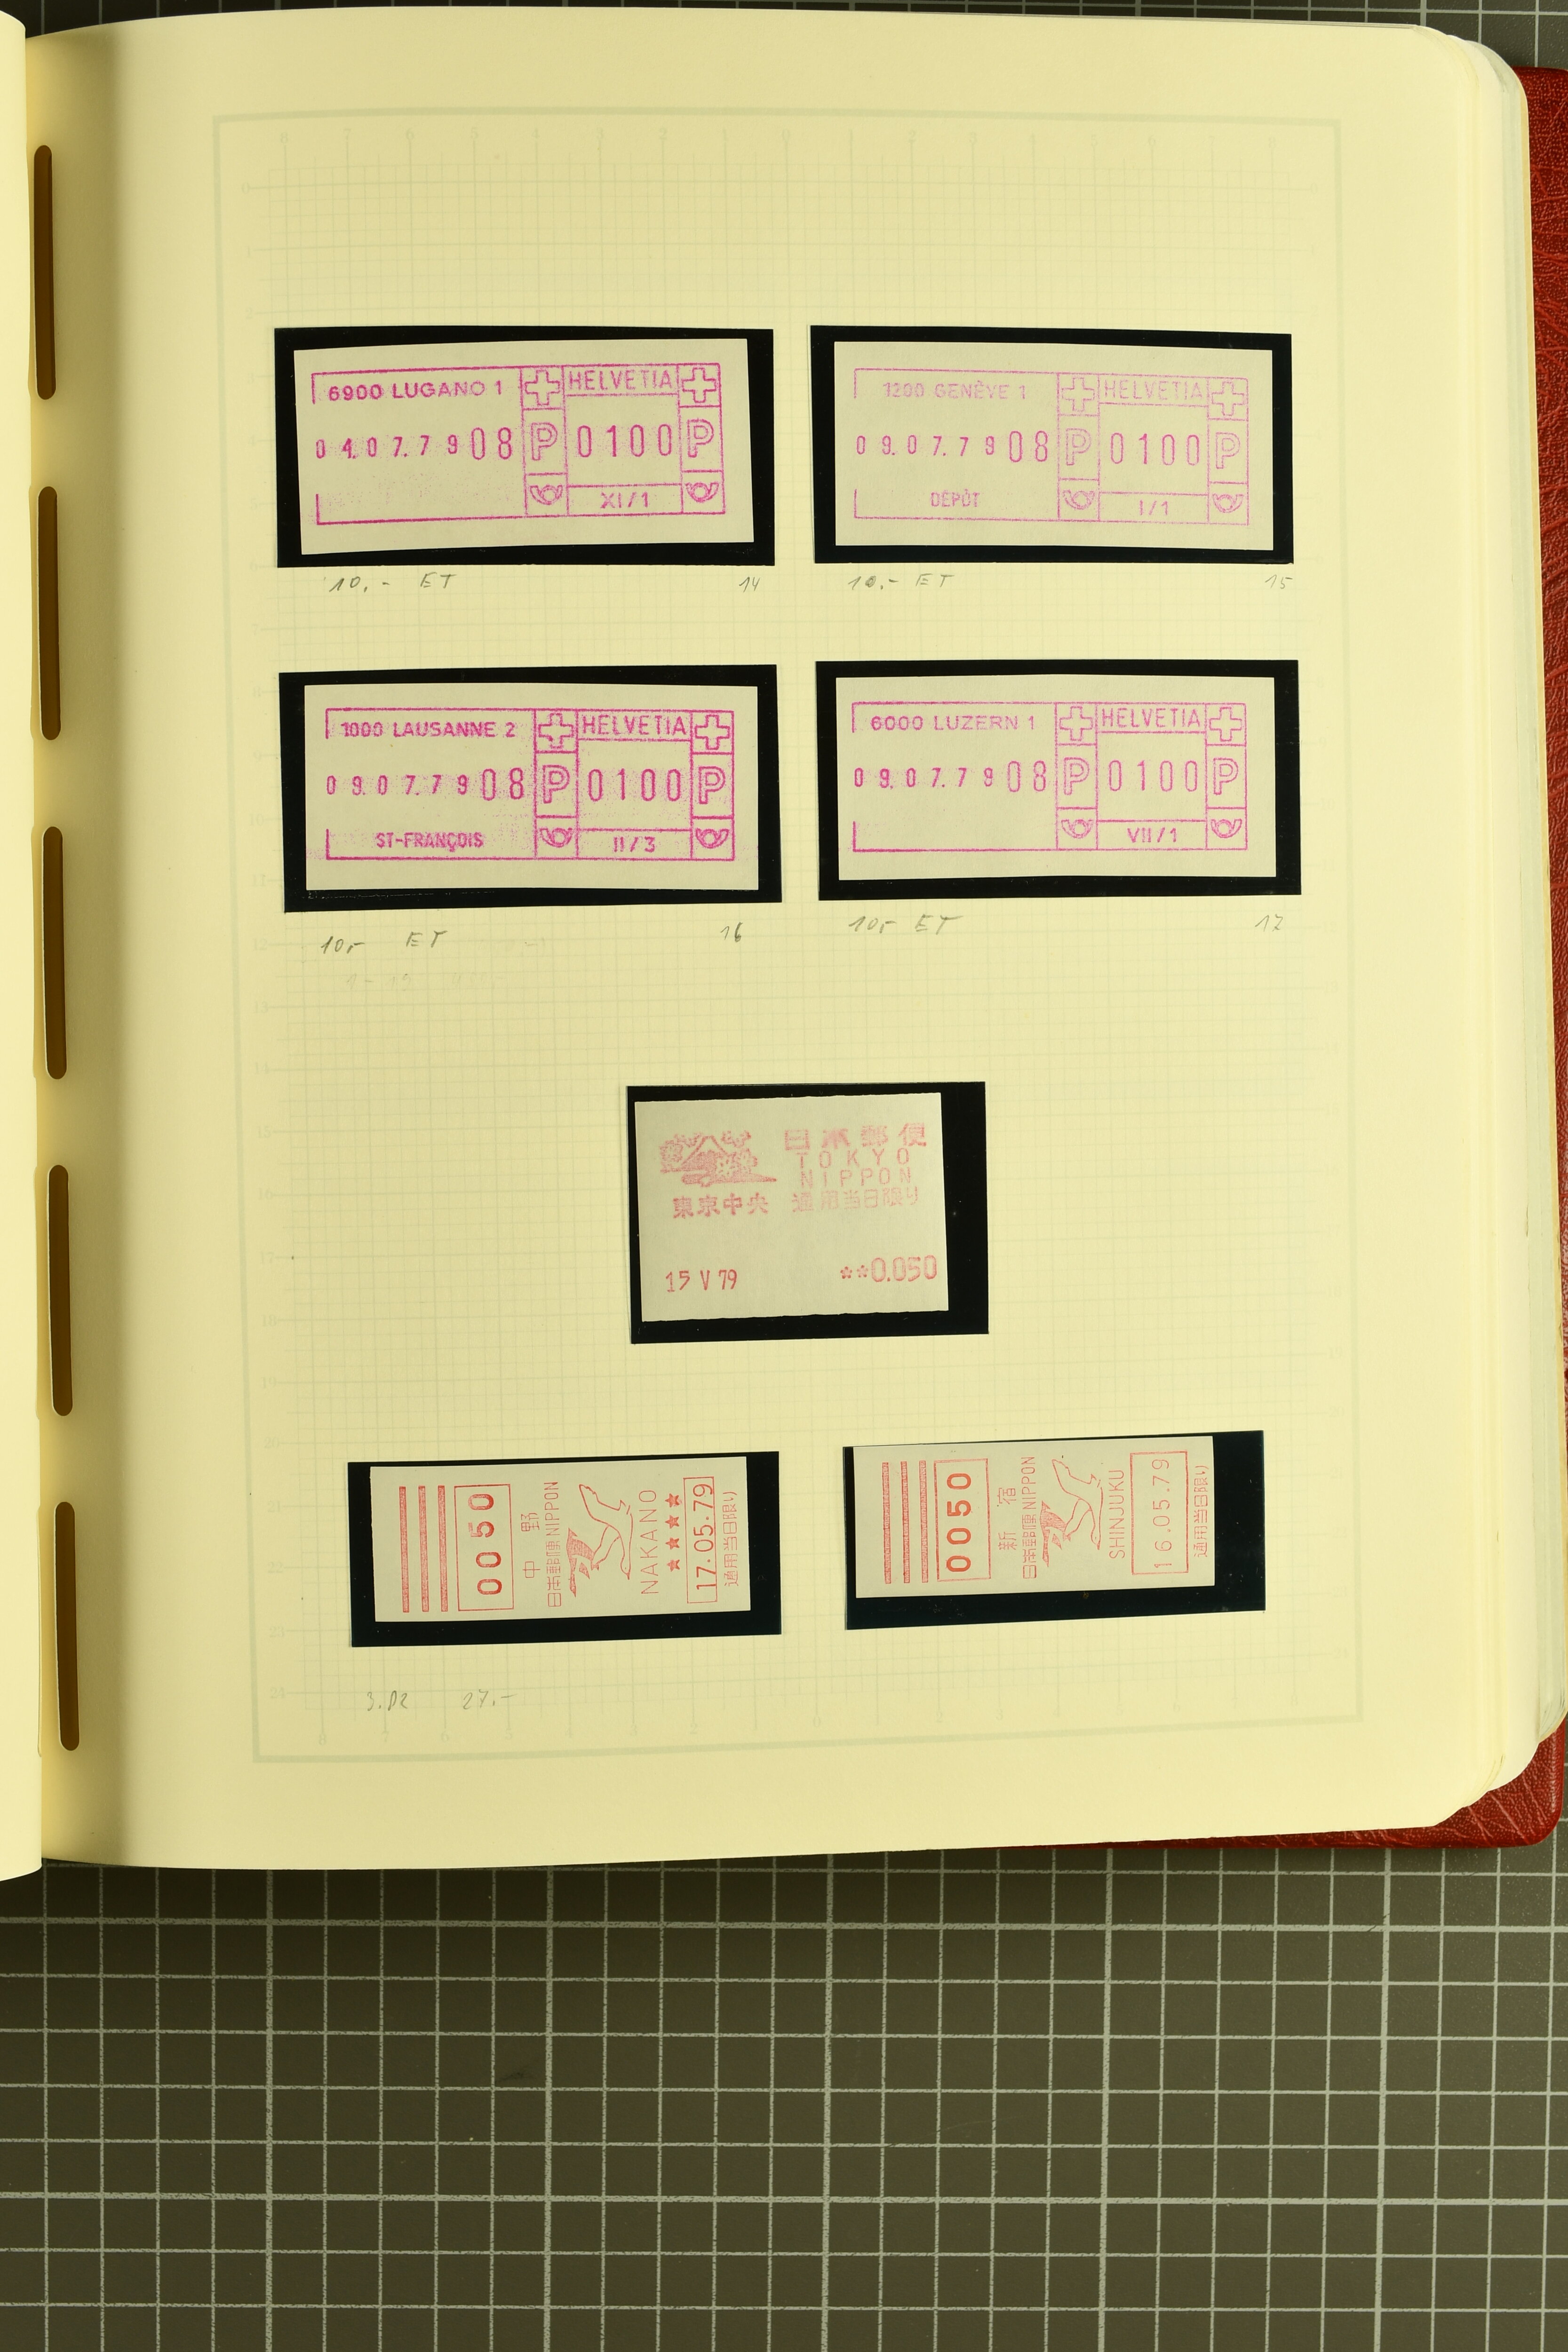 6900 LUGANO 1
HELVETIA
04.07.79 08 P 0100 P
XI/1
10.- ET 14
1200 GENÈVE 1
HELVETIA
09.07.79 08 P 0100 P
DÉPÔT
I/1
10.- ET 15
1000 LAUSANNE 2
HELVETIA
09.07.79 08 P 0100 P
ST-FRANÇOIS
II/3
10,- ET 16
6000 LUZERN 1
HELVETIA
09.07.79 08 P 0100 P
VII/1
10,- ET 17
日本郵便
TOKYO
NIPPON
東京中央 通用当日限り
15 V 79 **0.050
0050
中野
日本郵便 NIPPON
NAKANO
★★★★★
17.05.79
通用当日限り
0050
新宿
日本郵便 NIPPON
SHINJUKU
16.05.79
通用当日限り
27.-